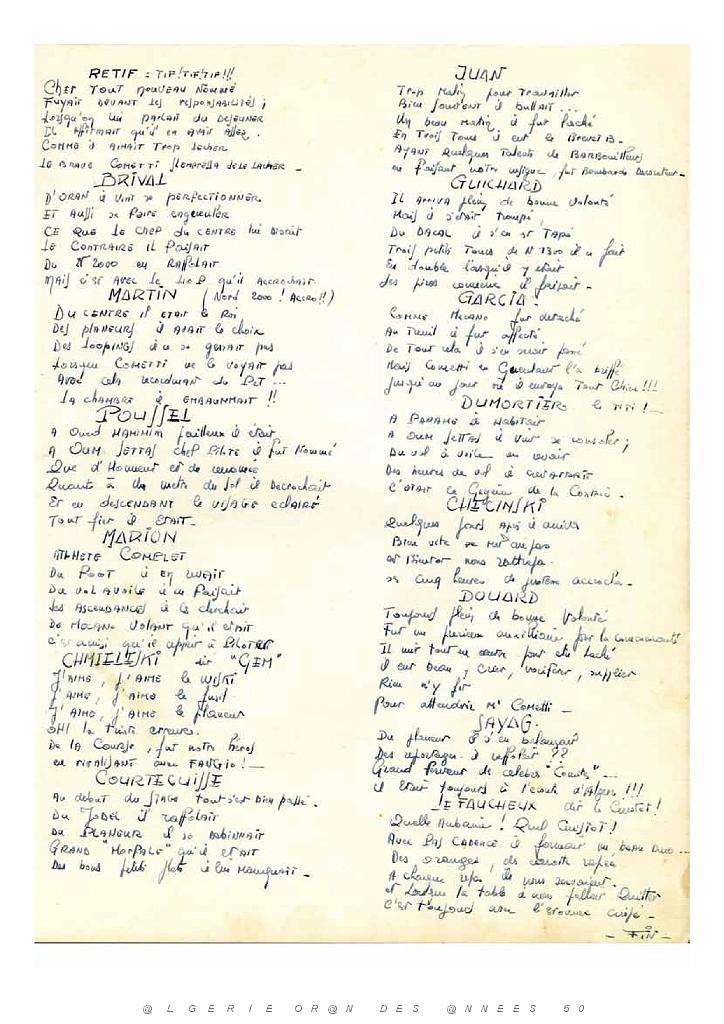 RETIF : TIF!TIF!TIF!!!
CHEF TOUT NOUVEAU NOMMÉ
FUYAIT DEVANT LES RESPONSABILITÉS ;
LORSQU'ON LUI PARLAIT DU DEJEUNER
IL AFFIRMAIT QU'IL EN AVAIT ASSEZ.
COMME IL AIMAIT TROP LACHER
LE BRAVE COMETTI S'EMPRESSA DE LE LACHER _
BRIVAL
D'ORAN IL VINT SE PERFECTIONNER
ET AUSSI SE FAIRE ENGUEULER
CE QUE LE CHEF DU CENTRE LUI DISAIT
LE CONTRAIRE IL FAISAIT
DU N 2000 EN RAFFOLAIT
MAIS C'EST AVEC LE QU'IL ACCROCHAIT.
MARTIN (Nord 2000 ! ACCRO!!)
DU CENTRE IL ETAIT LE ROI
DES PLANEURS IL AVAIT LE CHOIX
DES LOOPINGS IL NE SE GENAIT PAS
LORSQUE COMETTI NE LE VOYAIT PAS
AVEC CELA RECORDMAN DU PET ...
LA CHAMBRE IL EMBAUMMAIT !!
POUSSEL
A OUED HAMIMIM FAILLEUX IL ETAIT
A OUM SETTAS CHEF PILOTE IL FUT NOMMÉ
QUE D'HONNEUR ET DE RENOMMÉE
QUANT À UN METRE DU SOL IL DECROCHAIT
ET EN DESCENDANT LE VISAGE ECLAIRÉ
TOUT FIER IL ETAIT _
MARION
ATHLETE COMPLET
DU FOOT IL EN
DU VOL A VOILE IL EN FAISAIT
LES ASCENDANCES IL LE CHERCHAIT
DE MECANO VOLANT QU'IL ETAIT
C'EST AINSI QU'IL APPRIT À PILOTER
CHMIELESKI DIT "GEM"
J'AIME, J'AIME LE WISKI
J'AIME, J'AIME LE FUSIL
J'AIME, J'AIME LE PLANEUR
OH! LA TRISTE ERREUR.
DE LA COURSE, FUT NOTRE HÉROS
EN RIVALISANT AVEC FANGIO ! _
COURTECUISSE
AU DEBUT DU STAGE TOUT S'EST BIEN PASSÉ.
DU JODEL IL RAFFOLAIT
DU PLANEUR IL SE DEBINNAIT
GRAND "MORPALE" QU'IL ETAIT
DES BONS PETITS PLATS IL LUI MANQUAIT _
JUAN
TROP MATIN POUR TRAVAILLER
BIEN SOUVENT IL BUTTAIT ...
UN BEAU MATIN IL FUT LACHÉ
EN TROIS TOURS IL EUT LE BREVET B _
AYANT QUELQUES TALENTS DE BARBOUILLEUR
EN FAISANT NOTRE INSIGNE, FUT BOMBARDÉ DECORATEUR _
GUICHARD
IL ARRIVA PLEIN DE BONNE VOLONTÉ
MAIS IL S'ETAIT TROMPÉ,
DU DACAL IL S'EN EST TAPÉ
TROIS PETITS TOURS DE N 1300 IL A FAIT
EN DOUBLE LORSQU'IL Y ETAIT
LES PIRES CONNERIES IL FAISAIT _
GARCIA _
COMME MECANO FUT DETACHÉ
AU TREUIL IL FUT AFFECTÉ.
DE TOUT CELA IL S'EN SERAIT PASSÉ
MAIS COMETTI EN GUEULANT L'A
JUSQU'AU JOUR OÙ IL ENVOYA TOUT CHIER !!!
DUMORTIER. LE TITI ! _
A PANAME IL HABITAIT
A OUM SETTAS IL VINT SE CONSOLER ;
DU VOL À VOILE EN
DES HEURES DE VOL IL
C'ETAIT LE GUGUSSE DE LA
CHECINSKI
QUELQUES JOURS APRÈS IL ARRIVA
BIEN VITE SE MIT AU PAS
ET BIENTOT NOUS RATTRAPA.
SES CINQ HEURES DE JUSTESSE ACCROCHA _
DOUARD
TOUJOURS PLEIN DE BONNE VOLONTÉ
FUT UN PRECIEUX AUXILLIAIRE POUR LA COMMUNAUTÉ
IL MIT TOUT EN OEUVRE POUR ETRE LACHÉ
IL EUT BEAU Y CRIER, VOCIFERER, SUPPLIER
RIEN N'Y FIT
POUR ATTENDRIR Mr COMETTI _
SAYAG.
DU PLANEUR IL S'EN BALANÇAIT
DES REPORTAGES IL RAFFOLAIT ??
GRAND DE CELEBRE "COMITÉS" _ ...
IL ETAIT TOUJOURS À L'ECOUTE D'ALGER !!!
LE FAUCHEUX DIT LE CUISTOT !
QUELLE AUBAINE ! QUEL CUISTOT !
AVEC LAS CADENCE IL FORMAIT UN BEAU DUO ...
DES ORANGES, DES CAROTTE RAPÉE
A CHAQUE REPAS ILS NOUS SERVAIENT.
ET LORSQUE LA TABLE IL NOUS FALLAIT QUITTER
C'EST TOUJOURS AVEC L'ESTOMAC CREUSÉ _
_ FIN _
@ L G E R I E O R @ N D E S @ N N E E S 5 0